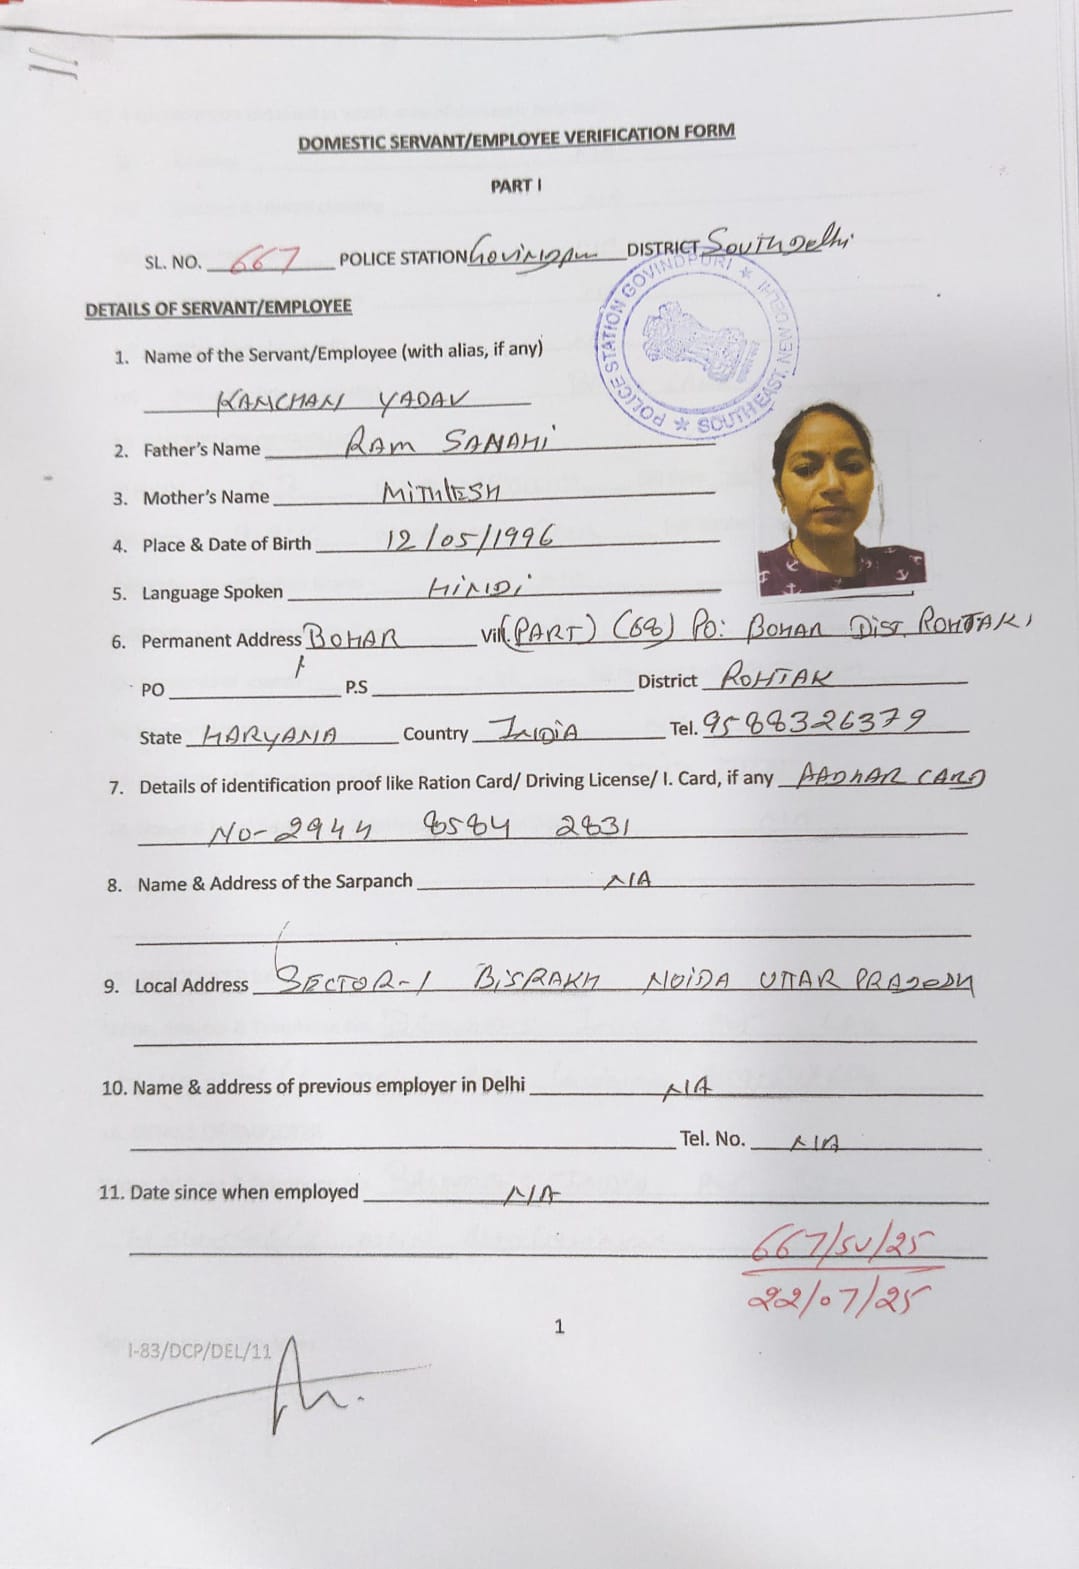 DOMESTIC SERVANT/EMPLOYEE VERIFICATION FORM
PART I
SL. NO. 667 POLICE STATION DISTRICT South Delhi
POLICE STATION GOVINDPURI * SOUTH EAST, NEW DELHI *
DETAILS OF SERVANT/EMPLOYEE
1. Name of the Servant/Employee (with alias, if any)
KANCHAN YADAV
2. Father's Name RAM SANAHI
3. Mother's Name MITHLESH
4. Place & Date of Birth 12/05/1996
5. Language Spoken HINDI
6. Permanent Address BOHAR Vill. (PART) (68) PO: BOHAR DIST. ROHTAK,
PO P.S District ROHTAK
State HARYANA Country INDIA Tel. 9588326379
7. Details of identification proof like Ration Card/ Driving License/ I. Card, if any AADHAR CARD
NO- 2944 8584 2831
8. Name & Address of the Sarpanch N/A
9. Local Address SECTOR-1 BISRAKH NOIDA UTTAR PRADESH
10. Name & address of previous employer in Delhi N/A
Tel. No. N/A
11. Date since when employed N/A
667/SV/25
22/07/25
1
I-83/DCP/DEL/11